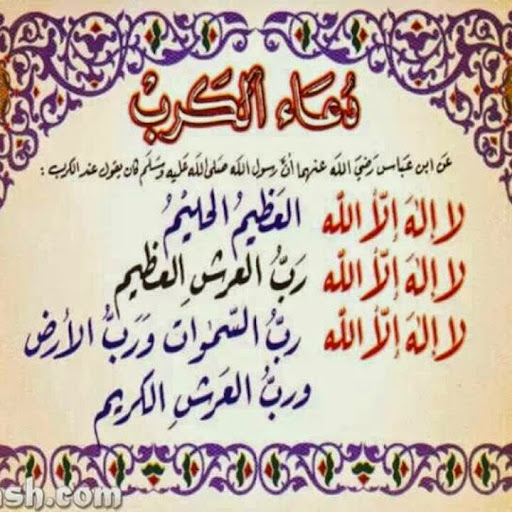 دُعَاء الكَرب
عَن ابن عَبّاس رَضيَ الله عَنهما أنَّ رسول الله صَلى الله عَليه وسَلم كان يقول عند الكرب :
لا إلهَ إلّا الله العَظيمُ الحَليْمُ
لا إلهَ إلّا الله رَبُّ العرشِ العظيم
لا إلهَ إلّا الله ربُّ السّمٰوات وَرَبُّ الأرض
وربُّ العَرشِ الكريم
sh.com